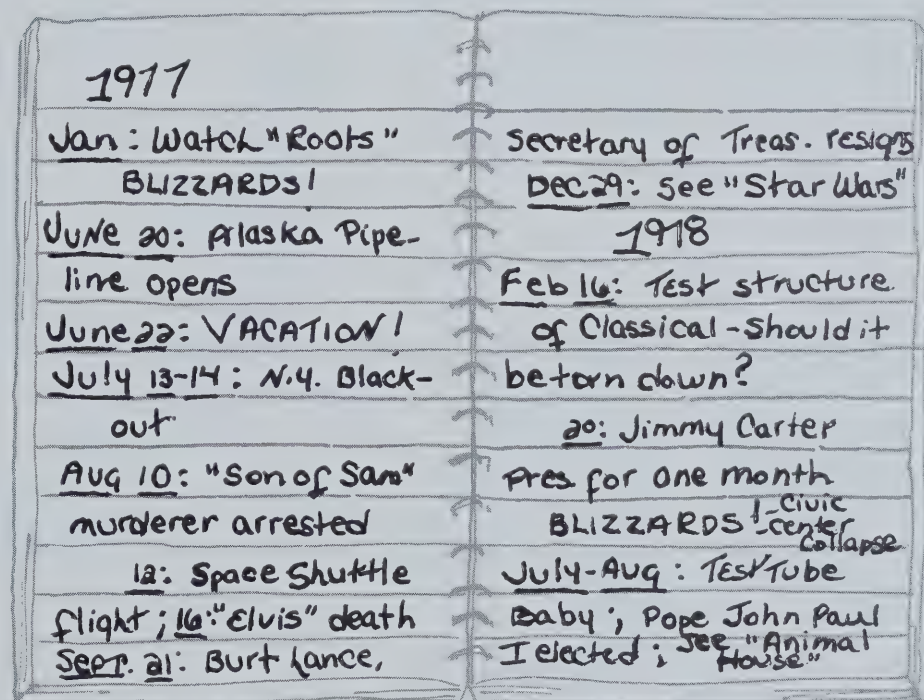 1977
Jan: Watch "Roots"
BLIZZARDS!
JUNE 20: Alaska Pipe-
line opens
June 22: VACATION!
July 13-14: N.Y. Black-
out
Aug 10: "Son of Sam"
murderer arrested
12: Space Shuttle
flight; 16: "Elvis" death
Sept. 21: Burt Lance,
Secretary of Treas. resigns
Dec 29: See "Star Wars"
1978
Feb 16: Test structure
of Classical - Should it
be torn down?
20: Jimmy Carter
Pres. for one month
BLIZZARDS! - Civic
center
Collapse
July-Aug: Test Tube
Baby; Pope John Paul
I elected; See "Animal
House"